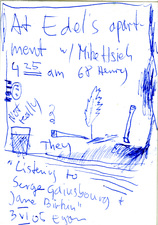 At Edel's apart-
ment w/ Mike Hsieh
4 25 am 68 Henry
Not really
They
"Listening to
Serge Gainsbourg &
Jane Birkin"
3 VI 05